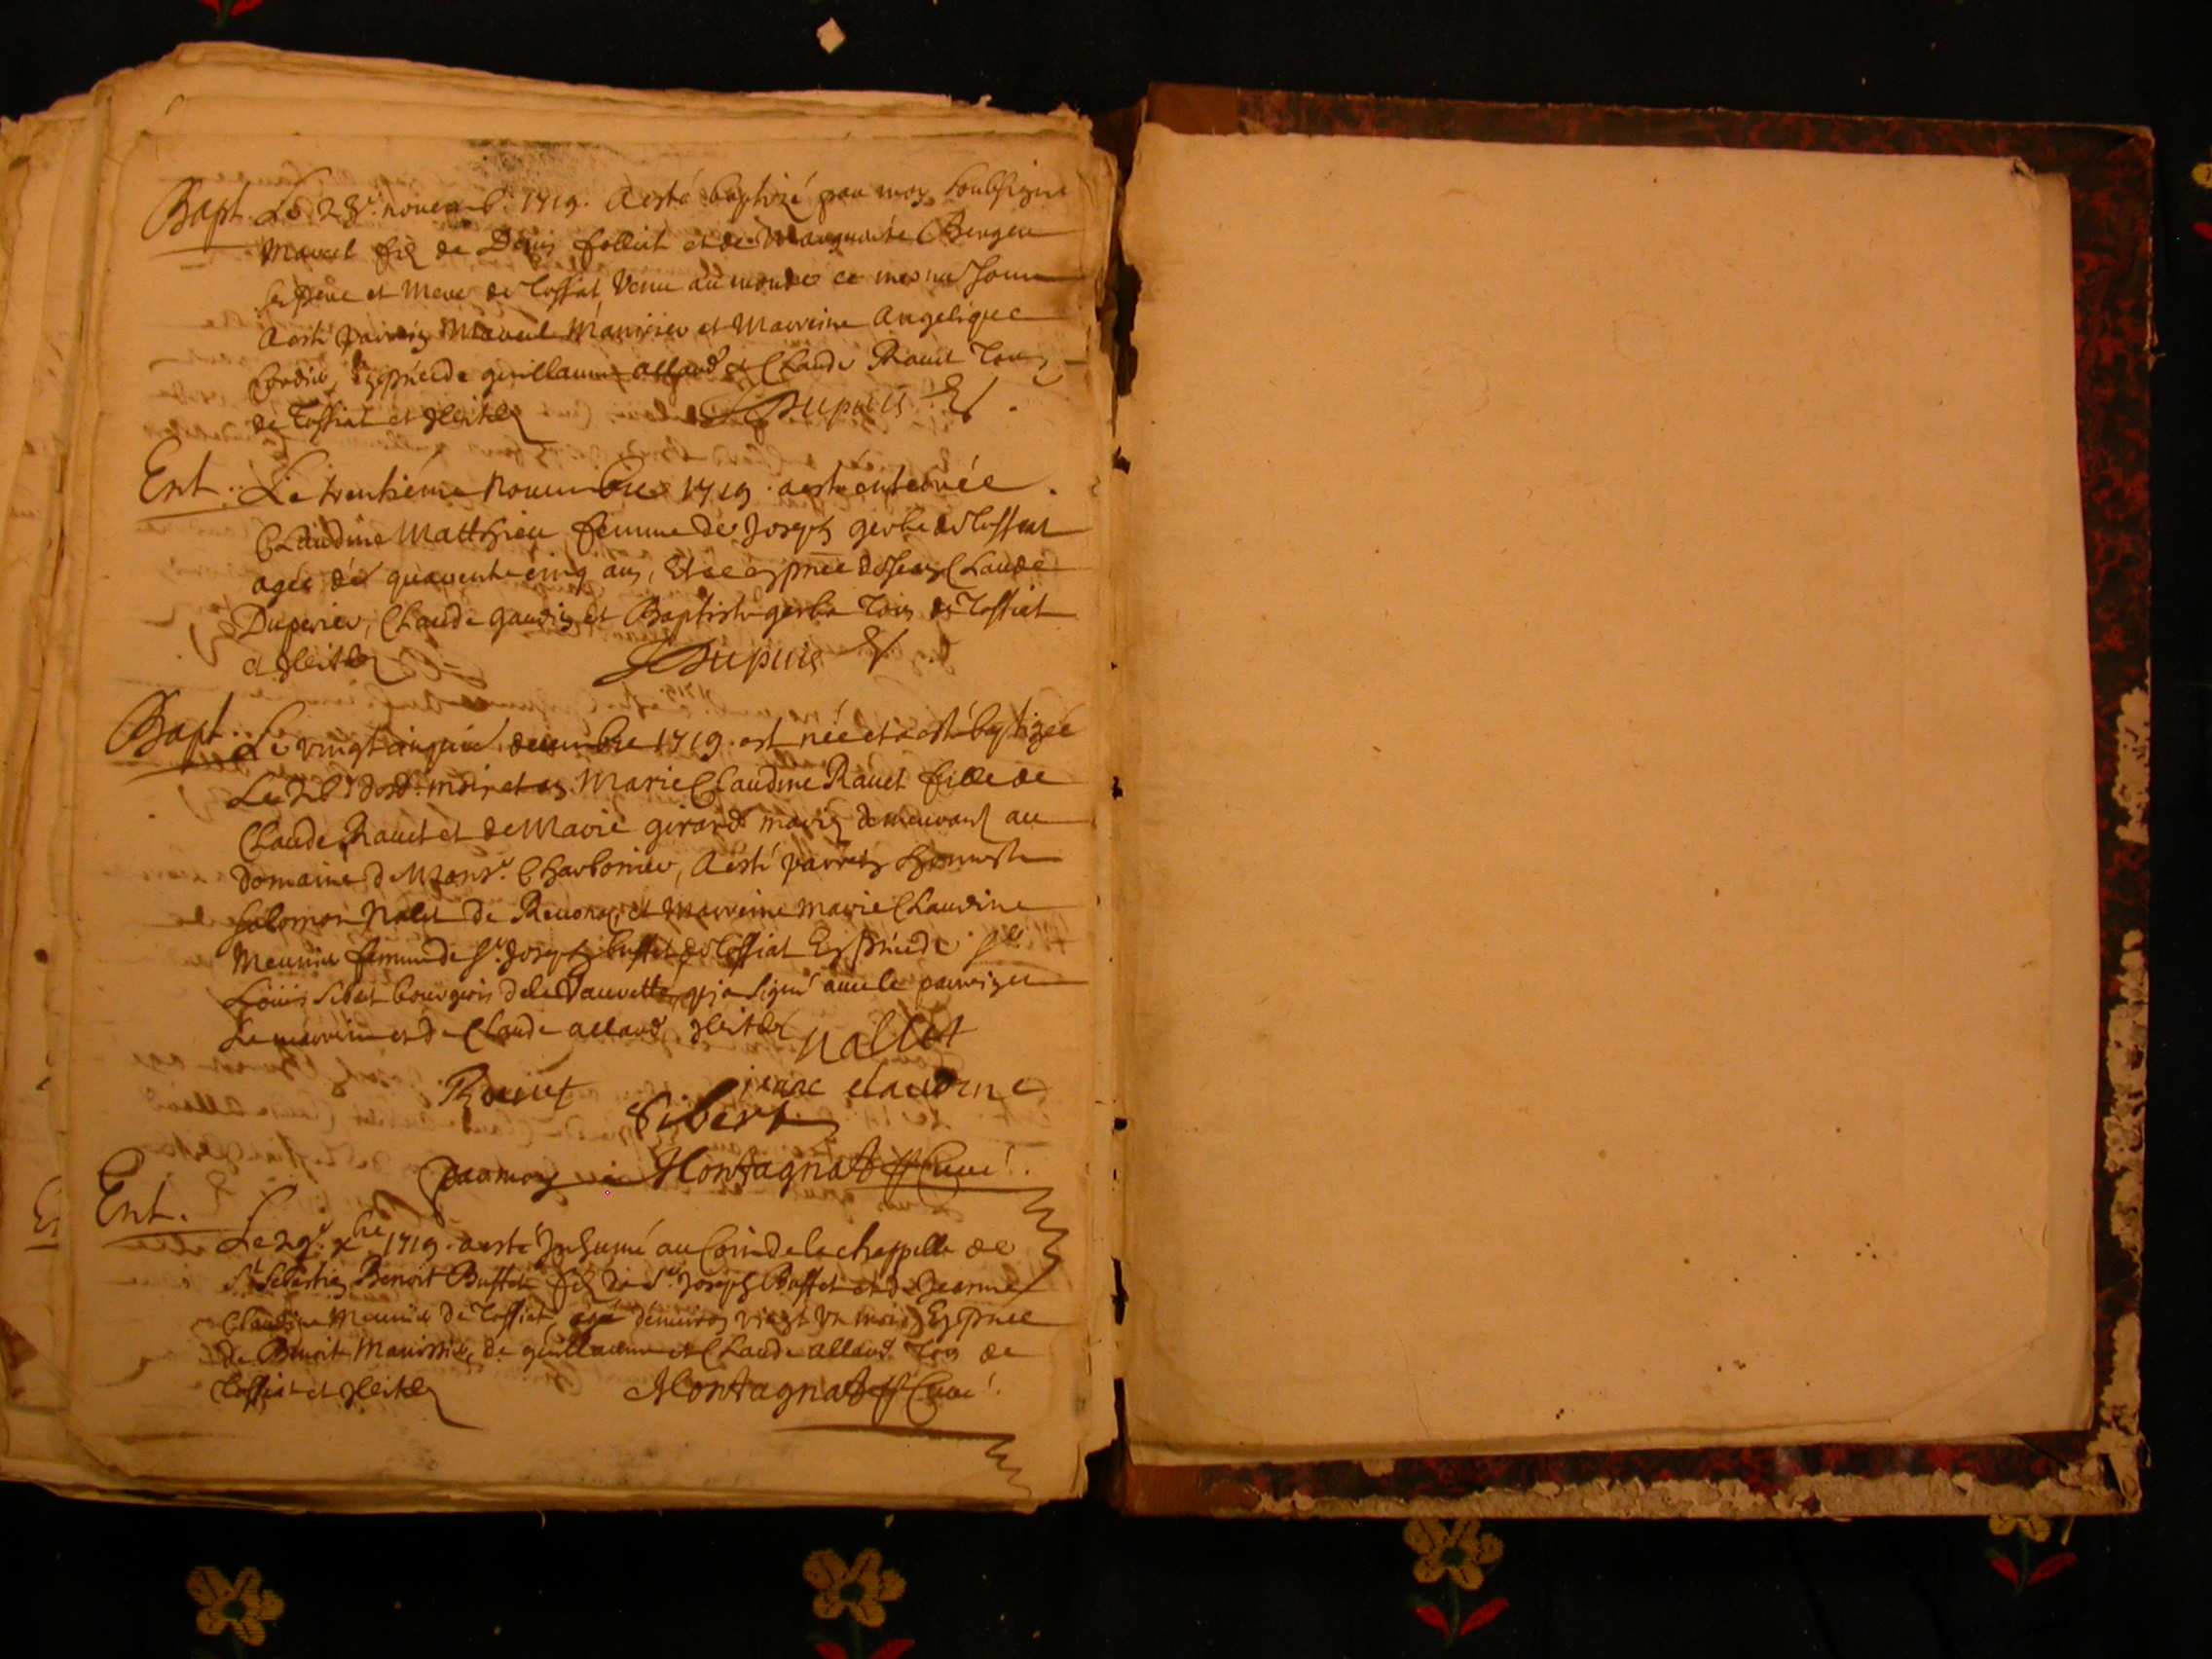 Bapt. Le 28e. novemb. 1719. a esté baptizé par moy soubsigné
Marcel fils de Denis folliet et de Marguerite Berger
ses père et mere de Tossiat, venu au monde ce mesme jour
a esté parrain Marcel Manissier et marreine Angelique
Cordier, En pñce de guillaume allard et Claude Ravet tous
de Tossiat et Illiterés Dupuis
Ent. Le trentième novembre 1719. a esté enterrée
Claudine Matthieu femme de Joseph gerbe de Tossiat
agée de quarente cinq ans, et ce en pñce de Jean Claude
Duperier, Claude gaudin et Baptiste gerbe tous de Tossiat
et Illiterés Dupuis
Bapt. Le vingt cinquiè. decembre 1719. est née et a esté baptizée
Le dud. mois et an Marie Claudine Ravet fille de
Claude Ravet et de Marie girard mariés demeurans au
domaine de Monsr. Charbonier, a esté parrein honneste
Salomon Nalet de Revonas, et marreine marie Claudine
Meunier femme de Sr. Joseph buffet de Tossiat En pñce de Sr.
Loüis Sibert bourgeois de la Vavrette, qui a signé avec le parrein et
La marreine et de Claude allard, Illiterés Nallet
Ravet jenne claudine
Sibert
par moy Montagnat Curé.
Ent.
Le 29e. xbre 1719. a esté Inhumé au Coin de la chappelle de
St. Sebastien Benoit Buffet fils de Sr. Joseph Buffet et de Jeanne
Claudine Meunier de Tossiat, agé d'environ vingt un mois, En pñce
de Benoit Manissier, de guillaume et Claude allard tous de
Tossiat et Illiterés Montagnat Curé.